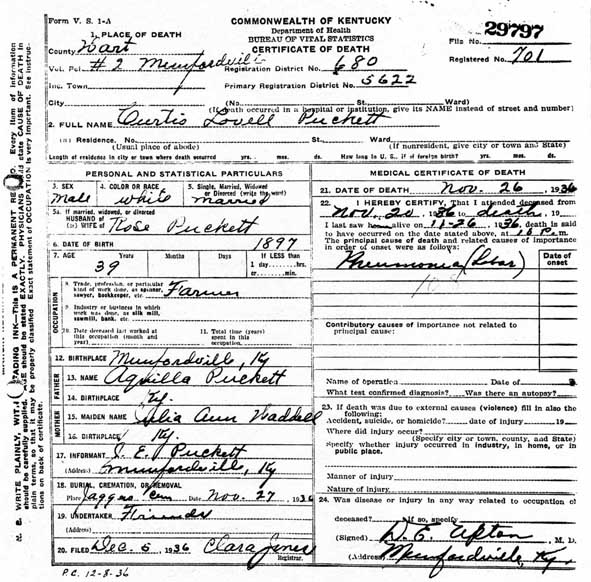 Form V. S. 1-A
COMMONWEALTH OF KENTUCKY
Department of Health
BUREAU OF VITAL STATISTICS
CERTIFICATE OF DEATH
File No. 29797
Registered No. 701
1. PLACE OF DEATH
County Hart
Vot. Pct. #2 Munfordville
Registration District No. 680
Inc. Town
Primary Registration District No. 5622
City (No. St. Ward)
(If death occurred in a hospital or institution, give its NAME instead of street and number)
2. FULL NAME Curtis Lovell Puckett
(a) Residence. No. St. Ward
(Usual place of abode) (If nonresident, give city or town and State)
Length of residence in city or town where death occurred yrs. mos. ds. How long in U. S., if of foreign birth? yrs. mos. ds.
PERSONAL AND STATISTICAL PARTICULARS
3. SEX Male
4. COLOR OR RACE White
5. Single, Married, Widowed or Divorced (write the word) Married
5a. If married, widowed, or divorced
HUSBAND of
(or) WIFE of Rose Puckett
6. DATE OF BIRTH 1897
7. AGE Years Months Days If LESS than
39 1 day hrs.
or min.
OCCUPATION
8. Trade, profession, or particular kind of work done, as spinner, sawyer, bookkeeper, etc. Farmer
9. Industry or business in which work was done, as silk mill, sawmill, bank, etc.
10. Date deceased last worked at this occupation (month and year)
11. Total time (years) spent in this occupation.
12. BIRTHPLACE Munfordville, Ky
FATHER
13. NAME Aquilla Puckett
14. BIRTHPLACE Ky.
MOTHER
15. MAIDEN NAME Ann Waddell
16. BIRTHPLACE Ky.
17. INFORMANT J. E. Puckett
(Address) Munfordville, Ky
18. BURIAL, CREMATION, OR REMOVAL
Place Jaggers Cem Date Nov. 27 1936
19. UNDERTAKER Friends
(Address)
20. FILED Dec. 5 1936 Clara Jones
Registrar.
P.C. 12-8-36
MEDICAL CERTIFICATE OF DEATH
21. DATE OF DEATH Nov. 26, 1936
22. I HEREBY CERTIFY, That I attended deceased from
Nov. 20 1936 to death, 19
I last saw him alive on 11-26, 1936, death is said
to have occurred on the date stated above, at 10 P.m.
The principal cause of death and related causes of importance
in order of onset were as follows:
Date of onset
Pneumonia (Lobar)
108
Contributory causes of importance not related to
principal cause:
Name of operation Date of
What test confirmed diagnosis? Was there an autopsy?
23. If death was due to external causes (violence) fill in also the
following:
Accident, suicide, or homicide? date of injury 19
Where did injury occur?
(Specify city or town, county, and State)
Specify whether injury occurred in industry, in home, or in
public place.
Manner of injury
Nature of injury
24. Was disease or injury in any way related to occupation of
deceased? If so, specify
(Signed) M. D.
(Address) Munfordville, Ky.